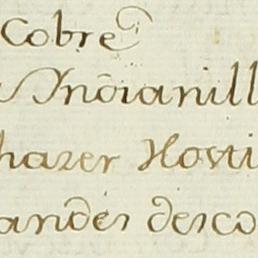 Cobre
Indianill
hazer Hosti
andes desco